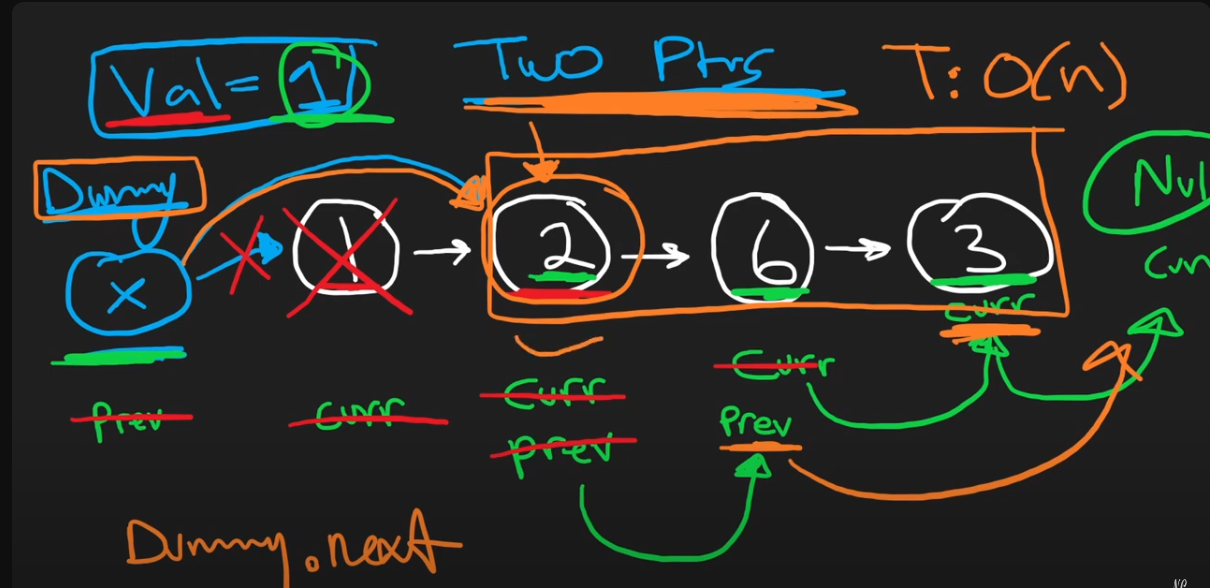 Val = 1
Two Ptrs
T: O(n)
Dummy
Nul
x
1
2
6
3
Curr
curr
Prev
curr
Curr
prev
Curr
Prev
Dummy.next